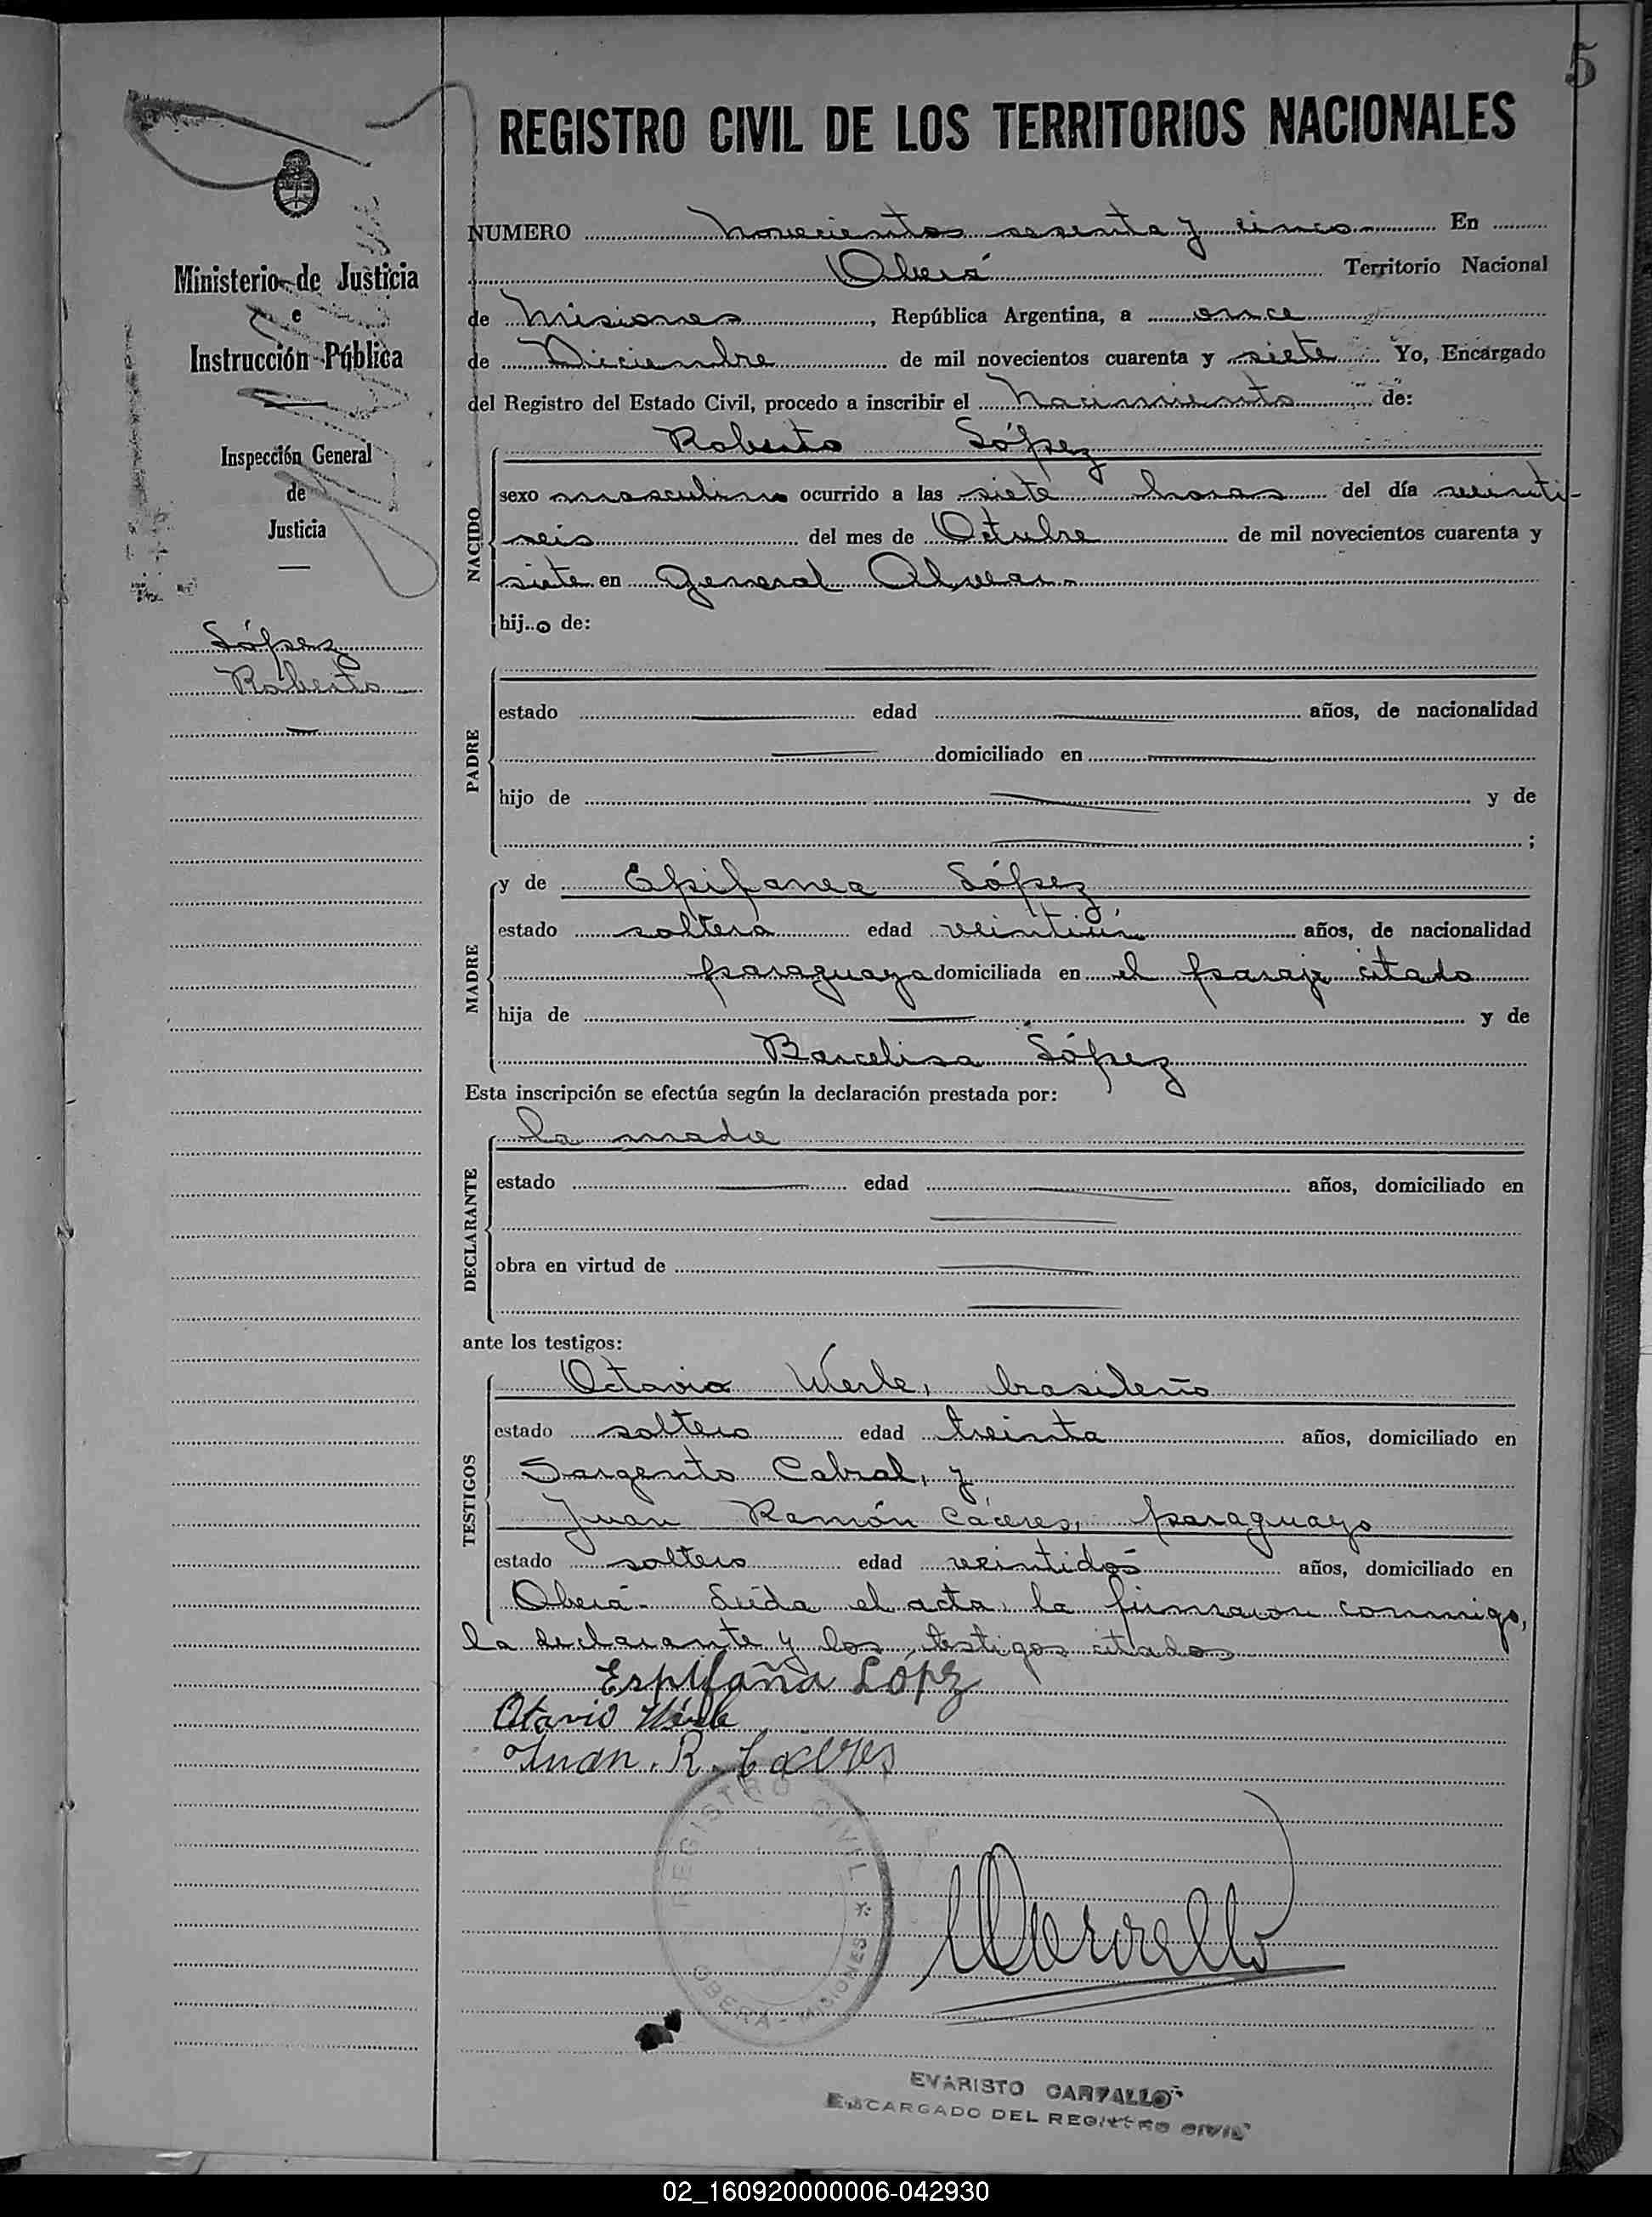 5
REGISTRO CIVIL DE LOS TERRITORIOS NACIONALES
Ministerio de Justicia
e
Instrucción Pública
Inspección General
de
Justicia
López
Roberto
NUMERO novecientos sesenta y cinco En
Oberá Territorio Nacional
de Misiones, República Argentina, a once
de Diciembre de mil novecientos cuarenta y siete Yo, Encargado
del Registro del Estado Civil, procedo a inscribir el Nacimiento de:
NACIDO
Roberto López
sexo masculino ocurrido a las siete horas del día veinti-
seis del mes de Octubre de mil novecientos cuarenta y
siete en General Alvear
hijo de:
PADRE
estado edad años, de nacionalidad
domiciliado en
hijo de y de
;
MADRE
y de Epifanea López
estado soltera edad veintiún años, de nacionalidad
paraguaya domiciliada en el paraje citado
hija de y de
Barcelisa López
Esta inscripción se efectúa según la declaración prestada por:
DECLARANTE
la madre
estado edad años, domiciliado en
obra en virtud de
ante los testigos:
TESTIGOS
Octavio Werle, brasileño
estado soltero edad treinta años, domiciliado en
Sargento Cabral, y
Juan Ramón Cáceres, paraguayo
estado soltero edad veintidós años, domiciliado en
Oberá- Leída el acta, la firmaron conmigo,
la declarante y los testigos citados
Espifaña Lópz
Otavio Werle
Juan. R. Caceres
REGISTRO CIVIL
OBERA - MISIONES
EVARISTO CARVALLO
ENCARGADO DEL REGISTRO CIVIL
02_160920000006-042930